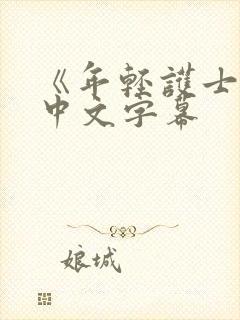 《年轻護士
中文字幕
娘城